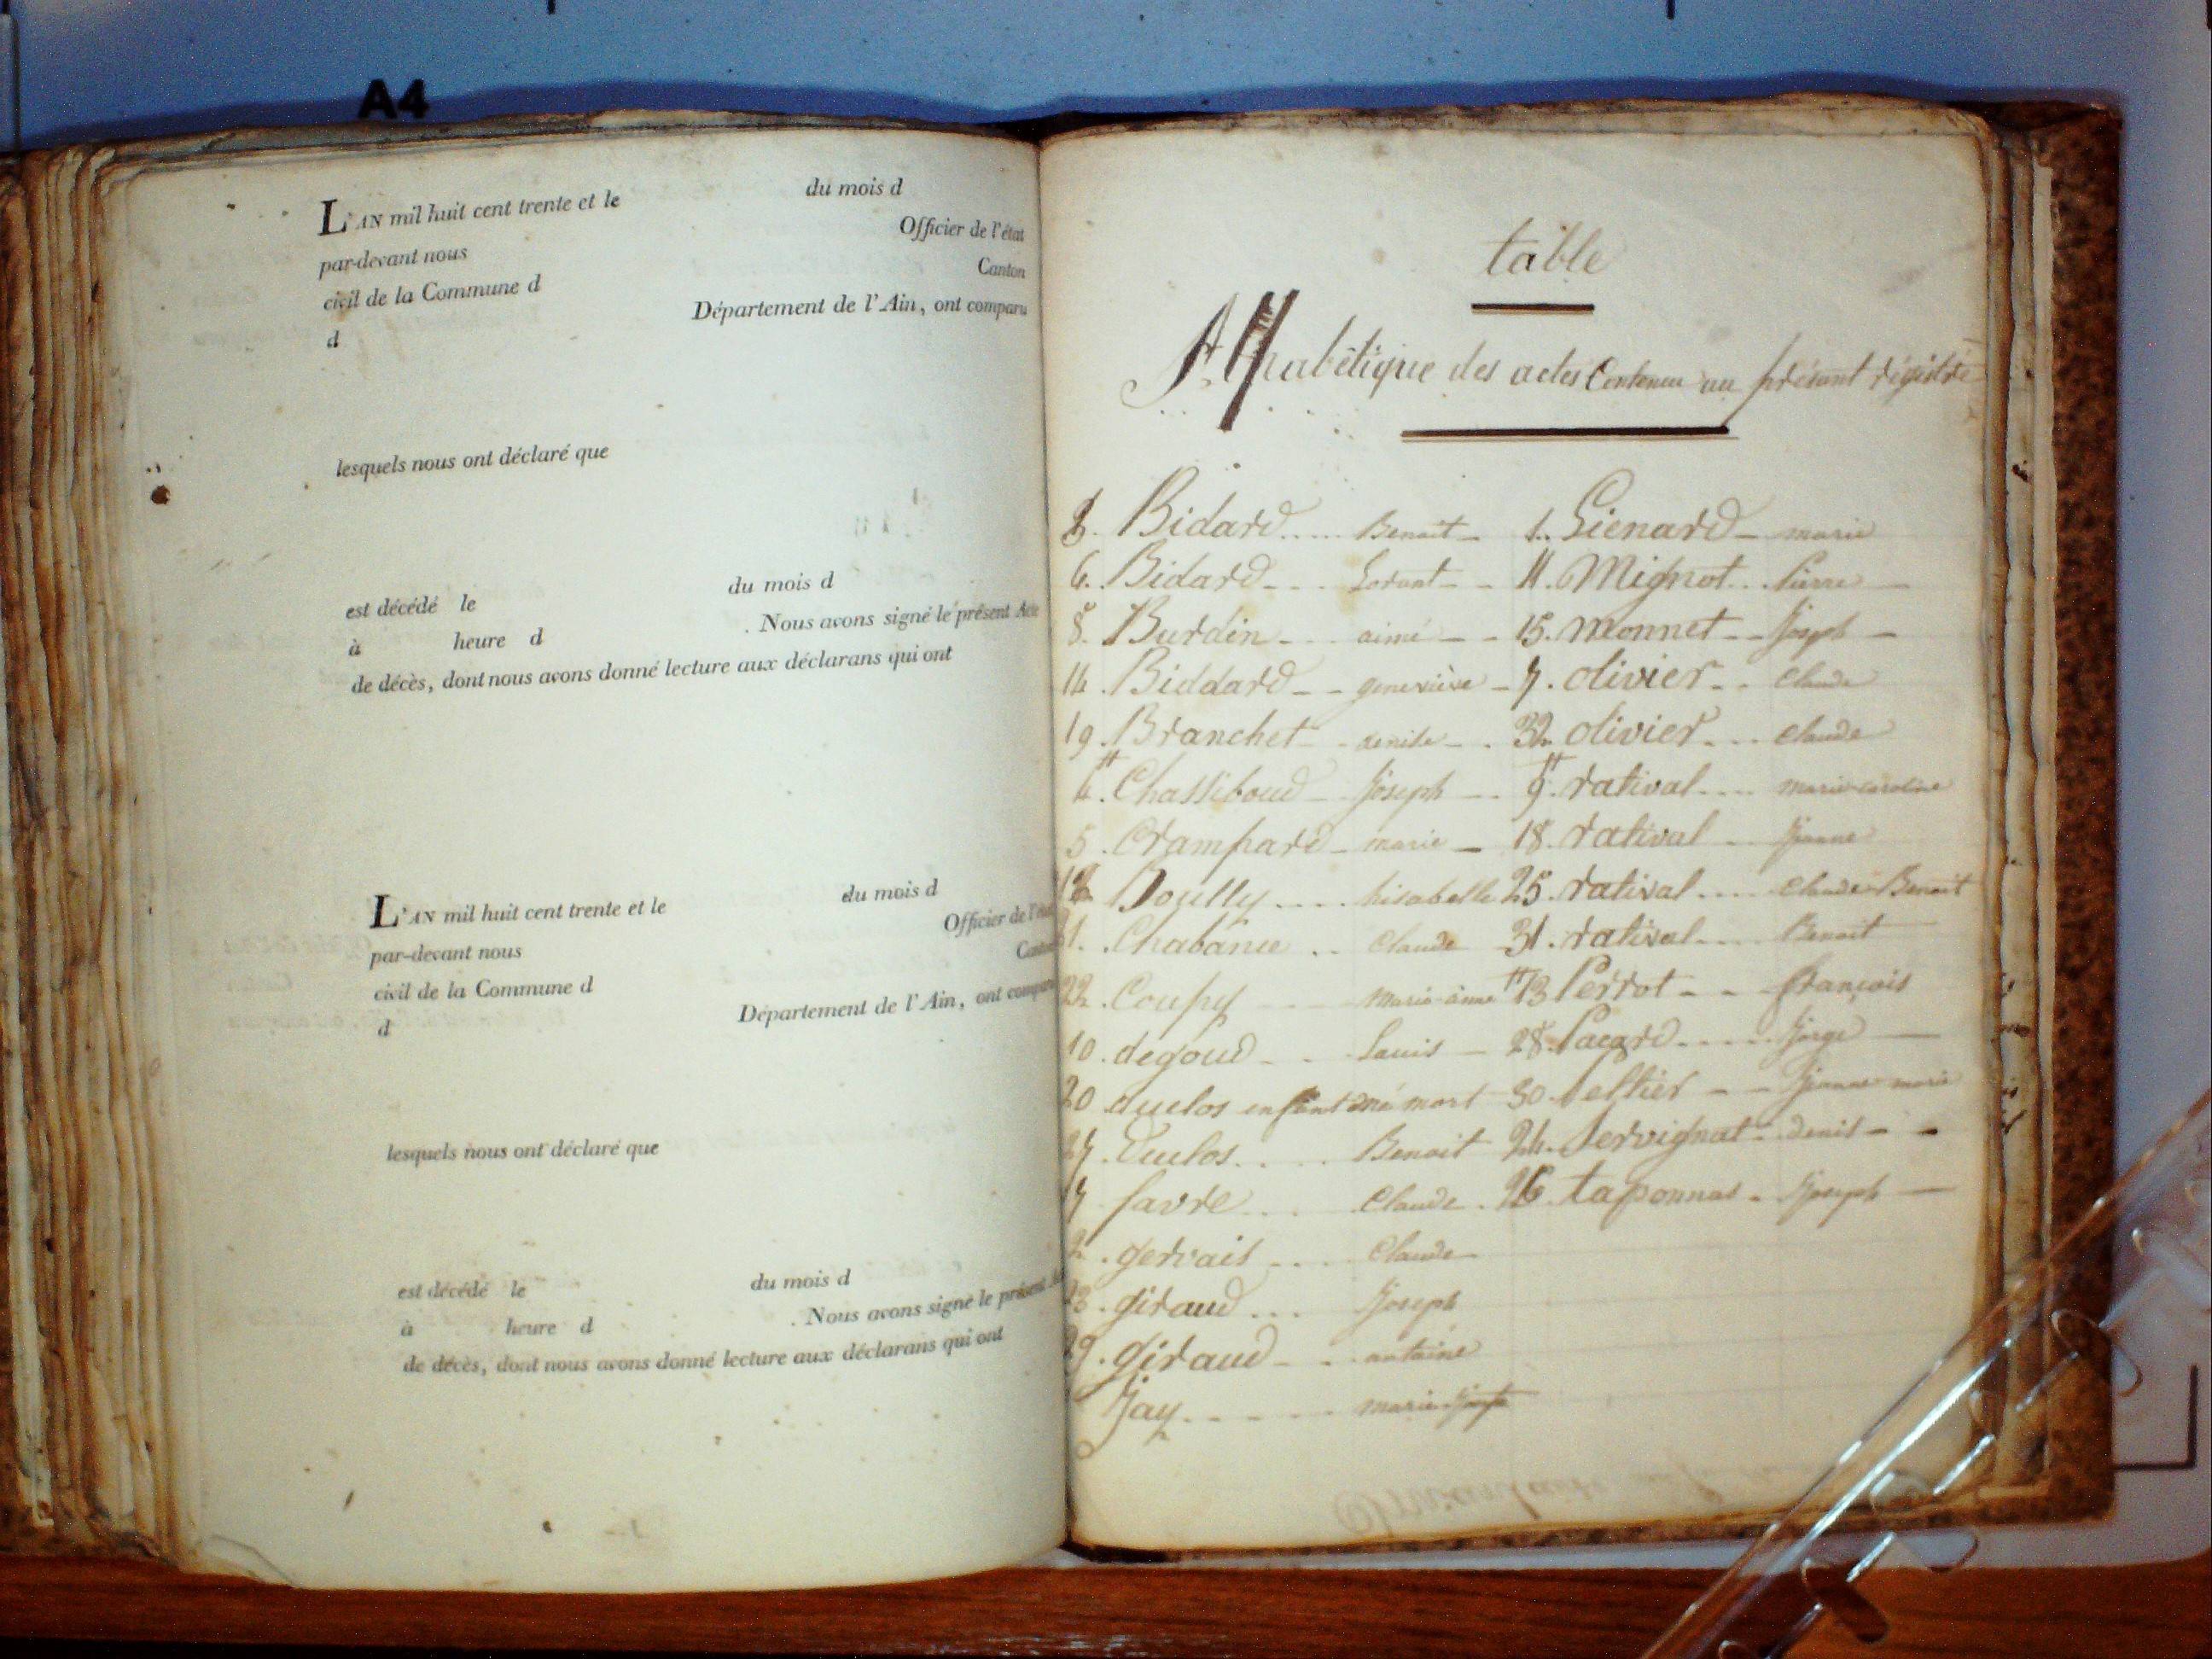 A4
L'AN mil huit cent trente et le du mois d
par-devant nous Officier de l'état
civil de la Commune d Canton
d Département de l'Ain, ont comparu
lesquels nous ont déclaré que
est décédé le du mois d
à heure d . Nous avons signé le présent Acte
de décès, dont nous avons donné lecture aux déclarans qui ont
L'AN mil huit cent trente et le du mois d
par-devant nous Officier de l'état
civil de la Commune d
d Département de l'Ain, ont
lesquels nous ont déclaré que
est décédé le du mois d
à heure d . Nous avons signé le présent
de décès, dont nous avons donné lecture aux déclarans qui ont
table
Alphabétique des actes Contenu au présant régistre
Bidard..... Benoit
6. Bidard Lorant
8. Burdin aimé
14. Biddard geneviève
19. Branchet denise
4. Chassiboud Joseph
5. Crampard marie
12 Douilly.... hisabelle
Chabanie .. Claude
22. Coupy marie-anne
10. degoud Louis
20 duclos enfant né mort
27. Duclos..... Benoit
favre.... Claude
2. gervais.... Claude
giraud... Joseph
giraud antoine
Jay marie
1. Liénard marie
11. Mignot.. Pierre
15. monnet Joseph
7. olivier Claude
32. olivier Claude
9. ratival.... marie-caroline
18. ratival Jeanne
25. ratival.... Claude-Benoit
31. ratival.... Benoit
13 Perrot françois
28. Pacard..... Jorge
30. Peltier Jeanne-marie
24. Servignat denis
26. taponnas Joseph